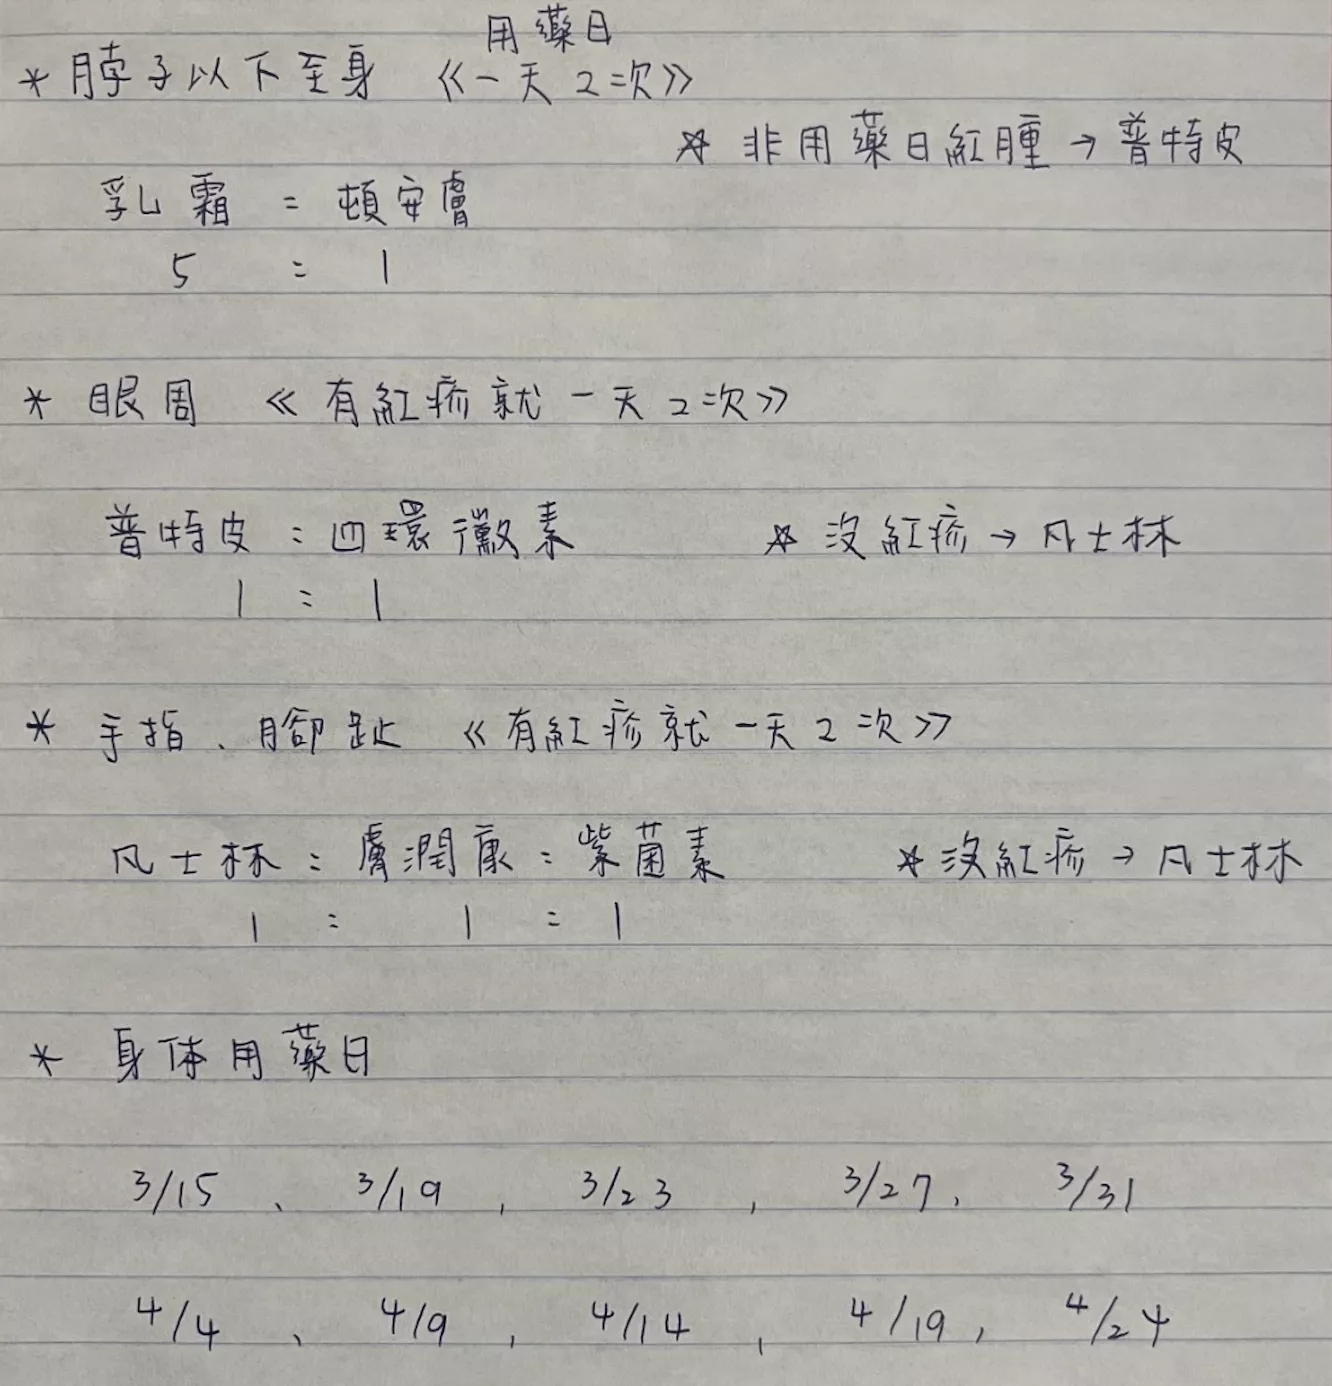 用藥日
* 脖子以下至身 《一天2次》
☆ 非用藥日紅腫→普特皮
乳霜 : 頓安膚
5 : 1
* 眼周 《有紅疹就一天2次》
普特皮 : 四環黴素 ☆ 沒紅疹→凡士林
1 : 1
* 手指、腳趾 《有紅疹就一天2次》
凡士林 : 膚潤康 : 紫菌素 ☆ 沒紅疹→凡士林
1 : 1 : 1
* 身体用藥日
3/15、3/19,3/23,3/27,3/31
4/4、4/9,4/14,4/19,4/24